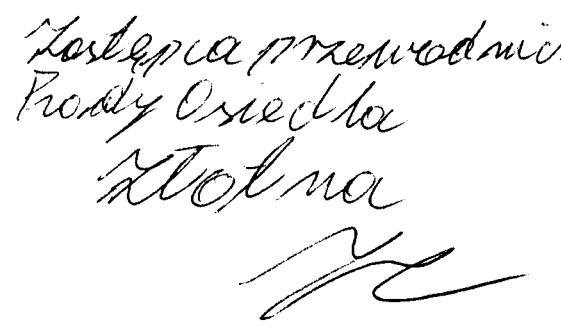 Zastępca przewodnic
Rady Osiedla
Złotna